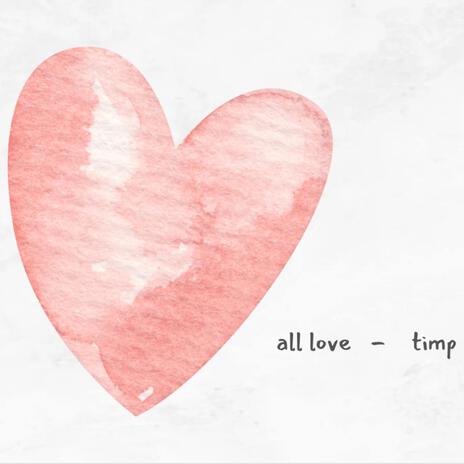 all love - timp